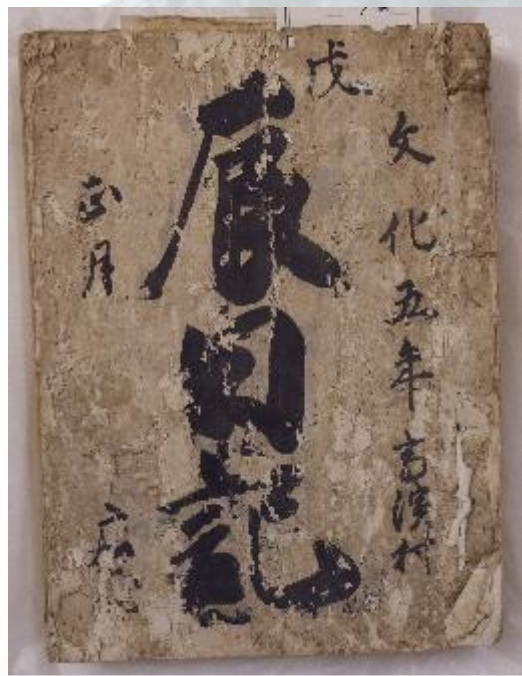 文化五年高濱村
戊
辰日記
正月